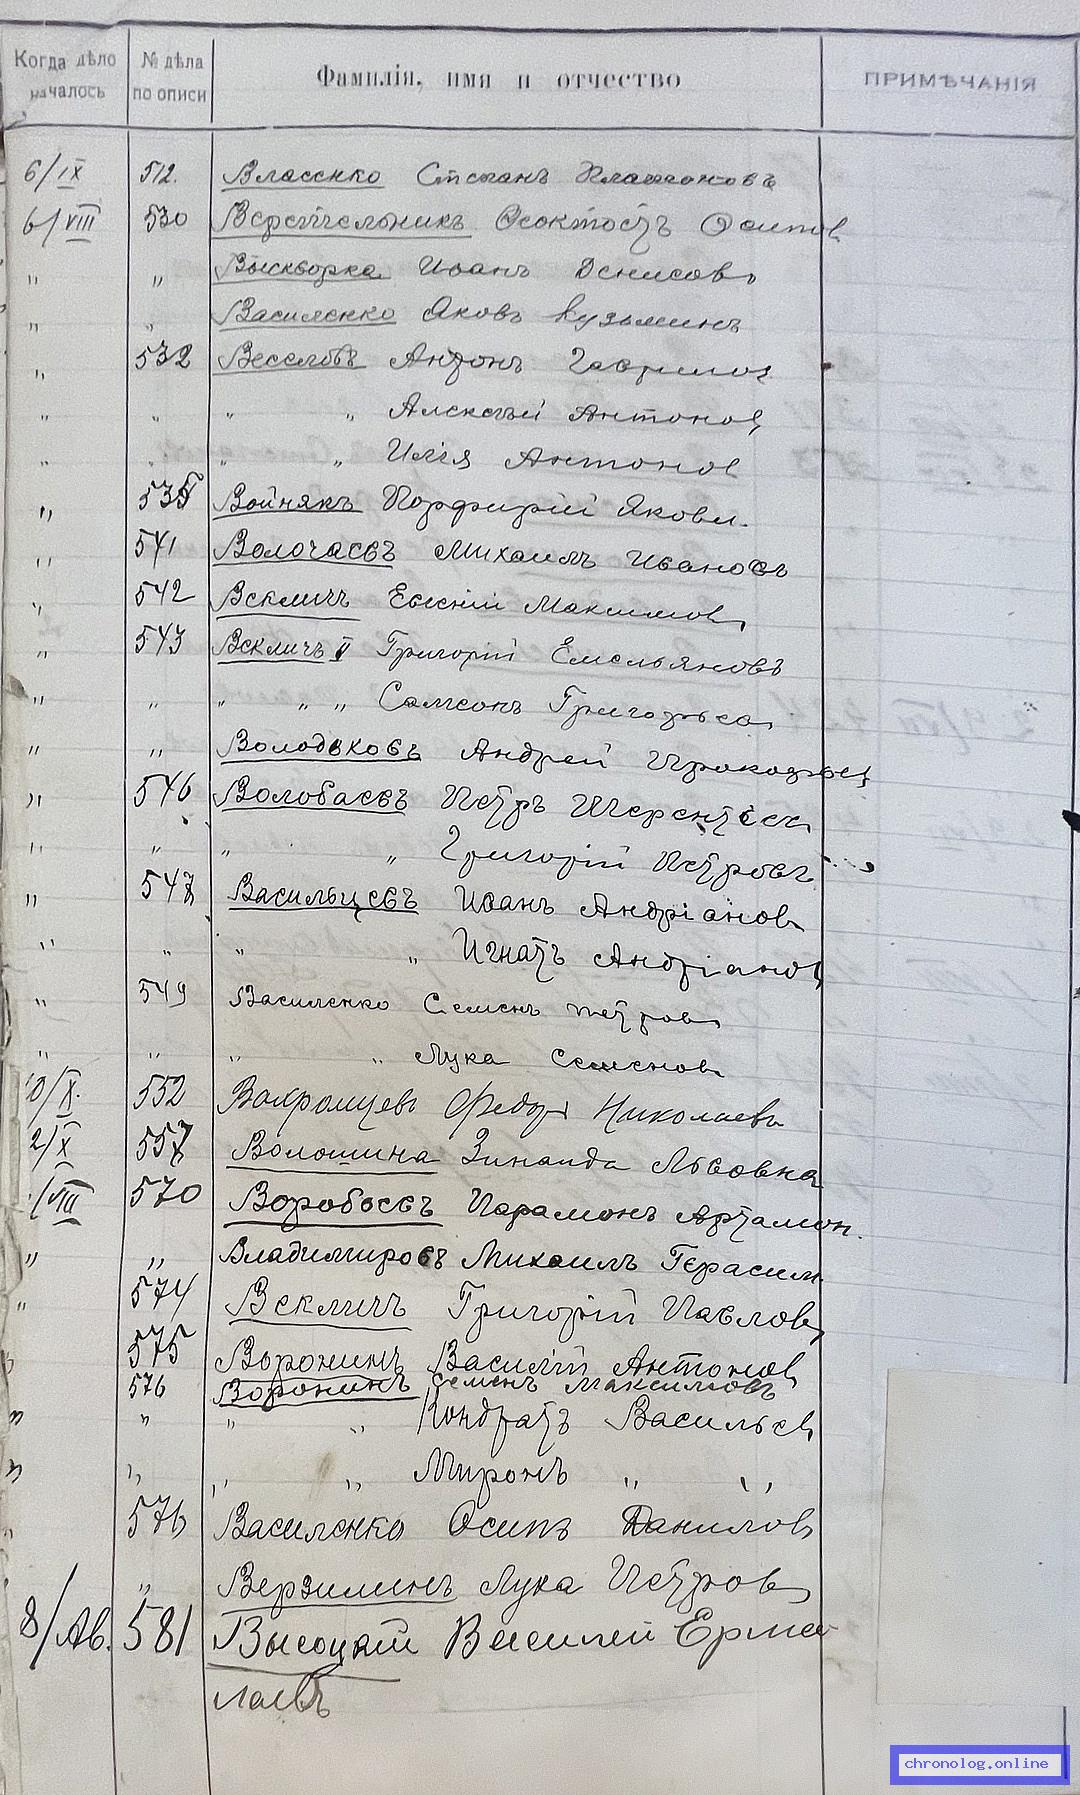 Когда дѣло началось № дѣла по описи Фамилія, имя и отчество ПРИМѢЧАНІЯ
6/IX 512. Власенко Степанъ Платоновъ
6/VIII 530 Веретельникъ Феоктистъ Осипов
" " Выскворка Иванъ Денисов
" " Василенко Яковъ Кузьминъ
" 532 Веселовъ Антонъ Гаврилов
" " " " Алексѣй Антонов
" " " " Илія Антонов
" 535 Войнякъ Порфирій Яковл.
" 541 Волочаевъ Михаилъ Ивановъ
" 542 Векличъ Евгеній Максимов
" 543 Векличъ II Григорій Емельяновъ
" " " " " Самсонъ Григорьев
" " Володьковъ Андрей Прокофьев
" 546 Волобаевъ Петръ Терентьев
" " " " Григорій Петровъ
" 547 Васильцевъ Иванъ Андріанов
" " " " Игнатъ Андріанов
" 549 Василенко Семенъ Петров
" " " " Лука Семенов
10/X. 552 Вахромцевъ Федоръ Николаевъ
2/X 557 Волошина Зинаида Львовна
/VIII 570 Воробьевъ Парамонъ Артамон.
" " Владимировъ Михаилъ Герасим
" 574 Векличъ Григорій Павлов
" 575 Воронинъ Василій Антонов
576 Воронинъ Семенъ Максимовъ
" " " " Кондратъ Васильев
" " " " Миронъ " "
" 576 Василенко Осипъ Данилов
" Верзилинъ Лука Петров
8/Ав. 581 Высоцкій Василій Ермо
лаевъ
chronolog.online